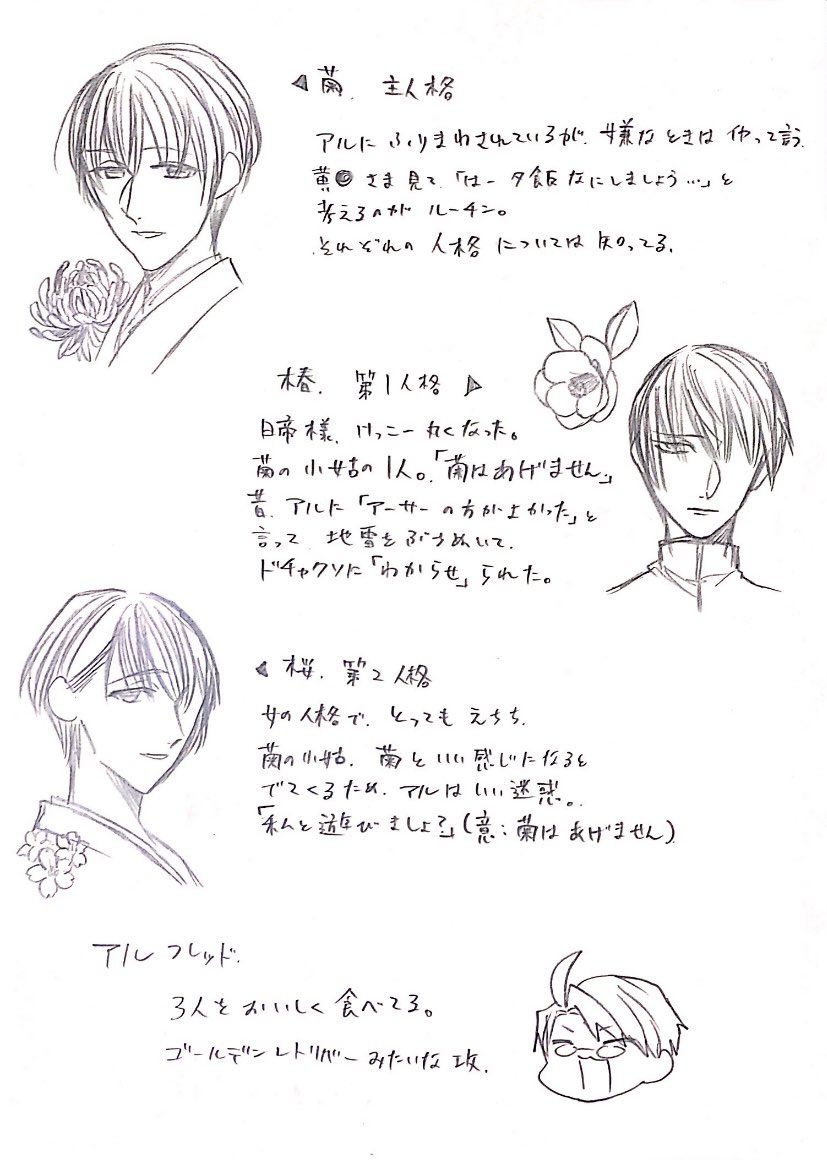 ◀ 菊. 主人格
アルに ふりまわされているが、嫌なときは 伝って言う.
黄 さま見て、「はー夕飯なにしましょう…」と
考えるのが ルーチン。
それぞれの 人格 については 知ってる.
椿. 第1人格 ▶
日帝様、けっこー丸くなった。
菊の 小姑の 1人。「菊はあげません」
昔、アルに「アーサーの方がよかった」と
言って 地雷をぶちぬいて、
ドチャクソに「わからせ」られた。
◀ 桜. 第2人格
女の人格で、とっても えちち.
菊の小姑. 菊といい感じになると
でてくるため、アルは いい迷惑。
「私と遊びましょ?」(意:菊は あげません)
アルフレッド.
3人を おいしく 食べてる。
ゴールデンレトリバーみたいな攻.